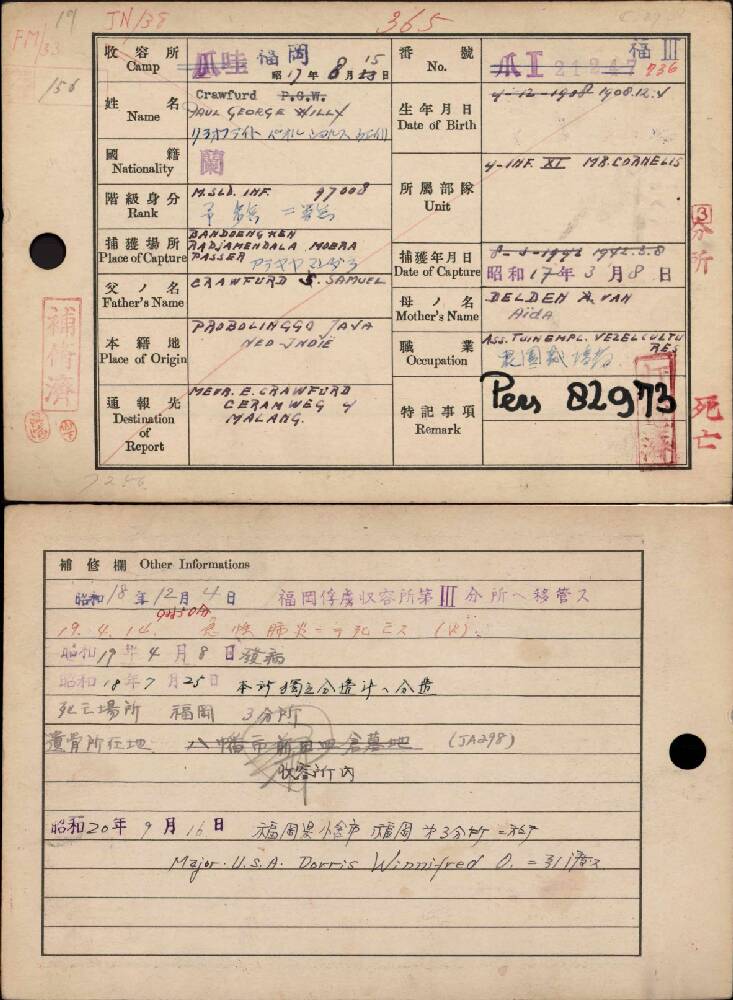 19
JN/38
365
FM/33
156
収容所 Camp
爪哇 福岡
昭 17 年 8 月 15 23 日
番號 No.
爪I 21247
福III
736
姓名 Name
Crawfurd P.G.W.
PAUL GEORGE WILLY
生年月日 Date of Birth
4-12-1908 1908.12.4
國籍 Nationality
蘭
階級身分 Rank
M. SLD. INF. 97008
所屬部隊 Unit
4-INF. XI MR. CORNELIS
捕獲場所 Place of Capture
BANDOENG KEN
RADJAMENDALA MOERA
PASSER
捕獲年月日 Date of Capture
8-3-1942 1942.3.8
昭和 17 年 3 月 8 日
父ノ名 Father's Name
CRAWFURD S. SAMUEL
母ノ名 Mother's Name
DELDEN A. VAN
AIDA
本籍地 Place of Origin
PROBOLINGGO JAVA
NED-INDIË
職業 Occupation
ASS. TUINEMPL. VEZELCULTU
RES
通報先 Destination of Report
MEVR. E. CRAWFURD
CERAMWEG 4
MALANG.
特記事項 Remark
Pers 82973
補脩濟
3
分所
死亡
補修欄 Other Informations
昭和 18 年 12 月 4 日 福岡俘虜収容所第III分所へ移管ス
9時50分
19. 4. 14. 急性肺炎ニテ死亡ス
昭和 19 年 4 月 8 日 發病
昭和 18 年 7 月 25 日
死亡場所 福岡 3分所
遺骨所在地 八幡市前田 墓地 (JA298)
収容所内
昭和 20 年 9 月 16 日 福岡県小倉市 福岡第3分所ニ於テ
Major. U.S.A. Dorris Winnifred O. ニ引渡ス